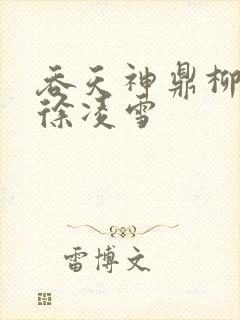 吞天神鼎柳
徐凌雪
雷博文